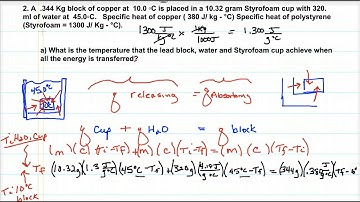 2. A .344 Kg block of copper at 10.0 °C is placed in a 10.32 gram Styrofoam cup with 320.
ml of water at 45.0◦C. Specific heat of copper ( 380 J/ kg - °C) Specific heat of polystyrene
(Styrofoam = 1300 J/ Kg - °C).
1300 J/kg°C × 1kg/1000g = 1.300 J/g°C
a) What is the temperature that the lead block, water and Styrofoam cup achieve when
all the energy is transferred?
45.0°C
releasing = Absorbing
q cup + q H2O = q block
Ti H2O, Cup
(m)(c)(Ti-Tf) + (m)(c)(Ti-Tf) = (m)(c)(Tf-Ti)
Tf
(10.32g)(1.3 J/g°C)(45°C-Tf) + (320g)( J/g°C)(45°C-Tf) = (344g)(.38 J/g°C)(Tf-
Ti 10°C
block